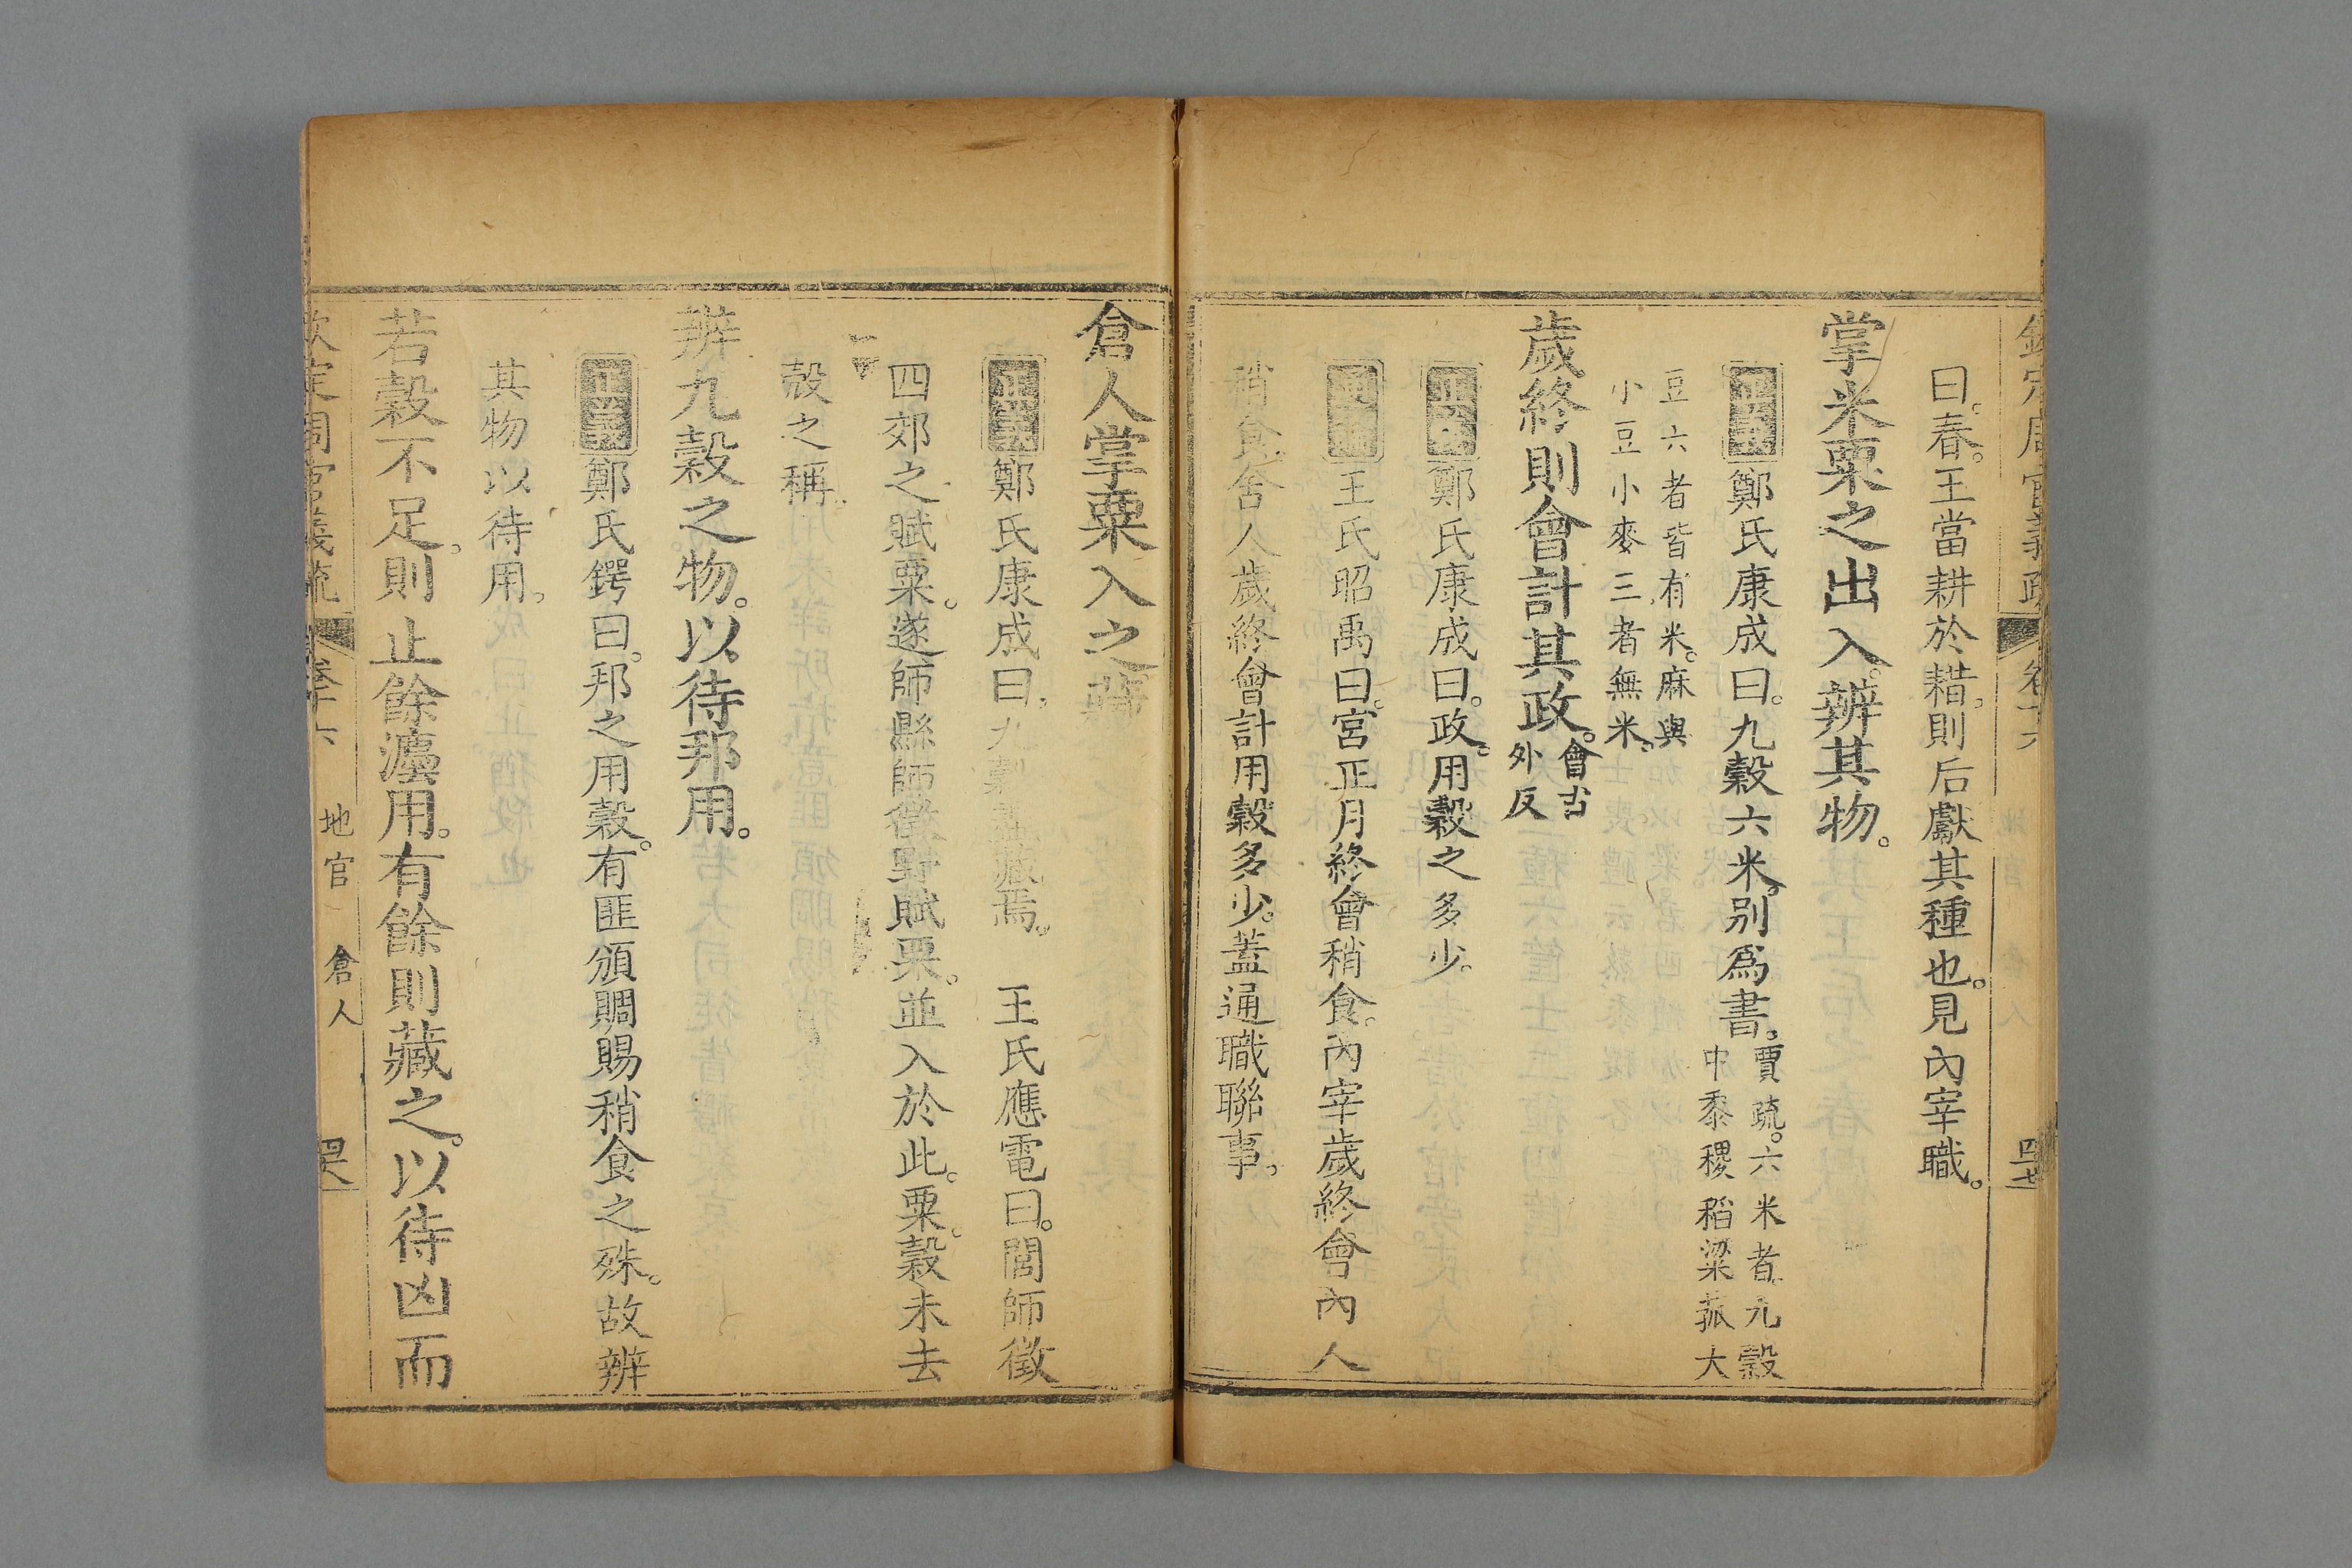 曰。春。王當耕於耤。則后獻其種也。見內宰職。
掌米粟之出入。辨其物。
正義 鄭氏康成曰。九穀六米。別爲書。賈疏。六米者。九穀
中黍稷稻粱菰大
豆六者皆有米。麻與
小豆小麥三者無米。
歲終則會計其政。會古
外反
正義 鄭氏康成曰。政。用穀之多少。
通論 王氏昭禹曰。宮正月終會稍食。內宰歲終會內人
稍食。舍人歲終會計用穀多少。蓋通職聯事。
卷十六
四七
倉人掌粟入之藏
正義 鄭氏康成曰。九穀盡藏焉。 王氏應電曰。閭師徵
四郊之賦粟。遂師縣師徵野賦粟。並入於此。粟。穀未去
殼之稱。
辨九穀之物。以待邦用。
正義 鄭氏鍔曰。邦之用穀。有匪頒賙賜稍食之殊。故辨
其物以待用。
若穀不足。則止餘灋用。有餘則藏之。以待凶而
欽定周官義疏 卷十六 地官 倉人 四八